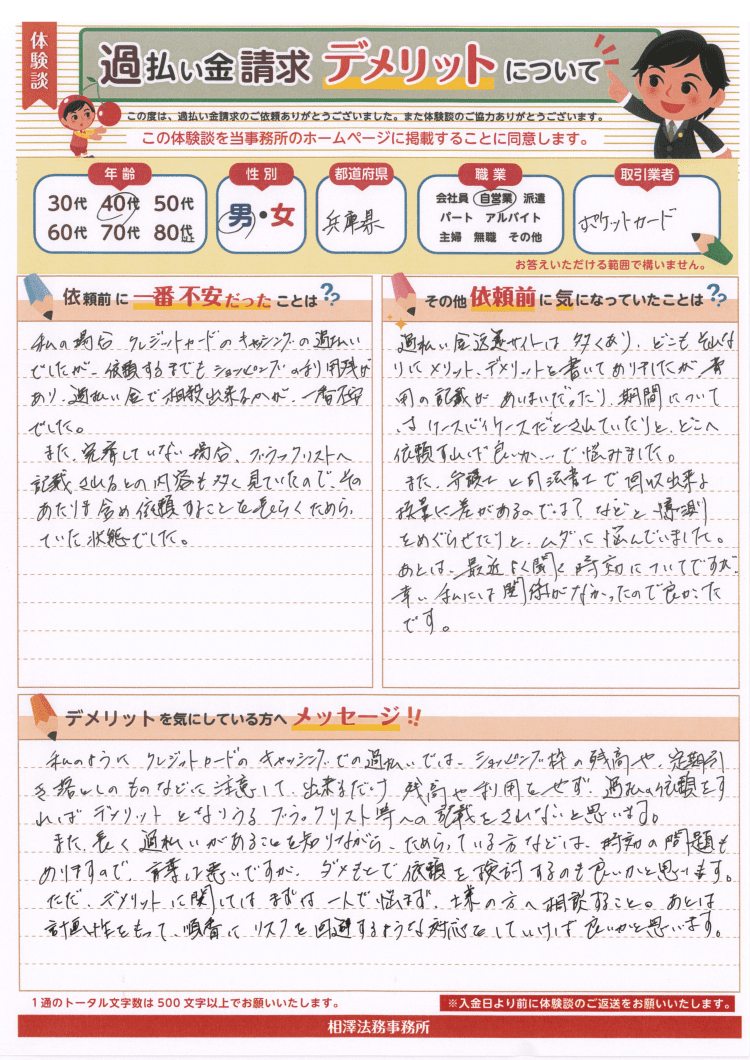 体験談
過払い金請求 デメリットについて
この度は、過払い金請求のご依頼ありがとうございました。また体験談のご協力ありがとうございます。
この体験談を当事務所のホームページに掲載することに同意します。
年齢
30代 40代 50代
60代 70代 80代以上
性別
男・女
都道府県
兵庫県
職業
会社員 自営業 派遣
パート アルバイト
主婦 無職 その他
取引業者
ポケットカード
お答えいただける範囲で構いません。
依頼前に一番不安だったことは??
私の場合 クレジットカードのキャッシングの過払い
でしたが、依頼するまでもショッピングの利用残が
あり、過払い金で相殺出来るかが、一番不安
でした。
また、完済していない場合、ブラックリストへ
記載されるとの内容も多く見ていたので、その
あたりも含め依頼することを長らくためらっ
ていた状態でした。
その他依頼前に気になっていたことは??
過払い金返還サイトは多くあり、どこもそれな
りにメリット、デメリットと書いてありましたが、費
用の記載があいまいだったり、期間について
はケースバイケースだとされていたりと、どこへ
依頼すれば良いか…で悩みました。
また、弁護士と司法書士で回収出来る
技量に差があるのでは？などと憶測
をめぐらせたりと、ムダに悩んでいました。
あとは、最近よく聞く時効についてですが、
幸い私には関係がなかったので良かった
です。
デメリットを気にしている方へ メッセージ!!
私のように クレジットカードの キャッシングでの過払いでは、ショッピング枠の残高や、定期引
き落としのものなどに注意して、出来るだけ 残高や利用をせず、過払の依頼をす
ればデメリットとなりうる ブラックリスト等への記載をされないと思います。
また、長く過払いがあることを知りながら、ためらっている方などは、時効の問題も
ありますので、言葉は悪いですが、ダメもとで依頼を検討するのも良いかと思います。
ただ、デメリットに関してはまずは一人で悩まず、士業の方へ相談すること。あとは
計画性をもって、順番にリスクを回避するような対応をしていけば良いかと思います。
1通のトータル文字数は500文字以上でお願いいたします。
※入金日より前に体験談のご返送をお願いいたします。
相澤法務事務所